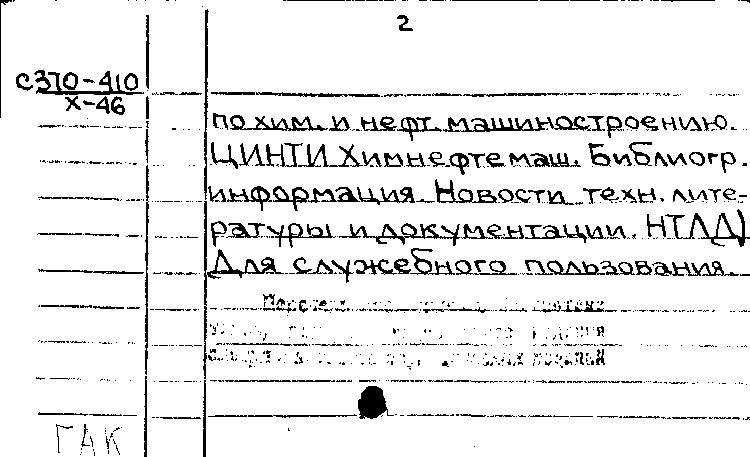 2
С370-410
Х-46
по хим. и нефт. машиностроению.
ЦИНТИ Химнефтемаш. Библиогр.
информация. Новости техн. лите-
ратуры и документации. НТЛД)
Для служебного пользования.
ГАК